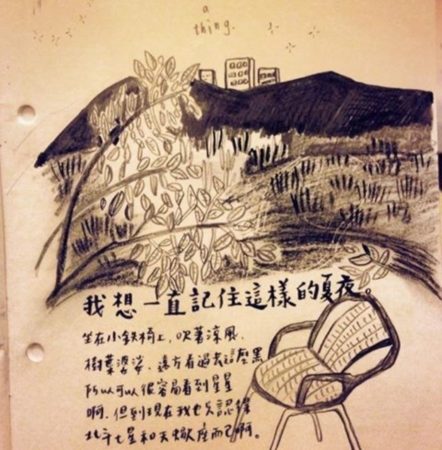 a
thing.
我想一直記住這樣的夏夜。
坐在小鐵椅上,吹著涼風,
樹葉婆娑,遠方看過去這麼黑
所以可以很容易看到星星
啊,但到現在我也只認得
北斗七星和天蠍座而已啊。